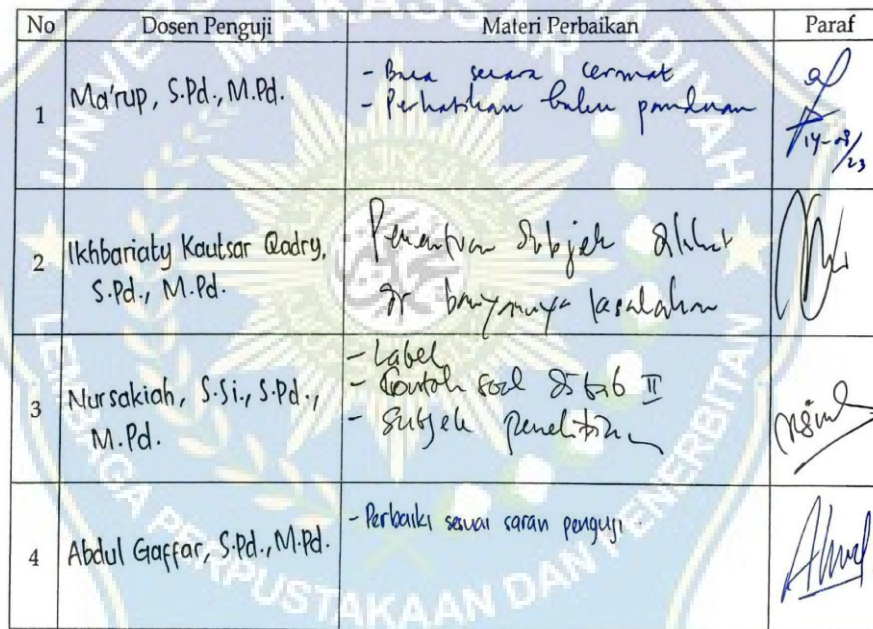 No Dosen Penguji Materi Perbaikan Paraf
1 Ma'rup, S.Pd., M.Pd.
- Baca secara cermat
- Perhatikan buku panduan
14-08/23
2 Ikhbariaty Kautsar Qadry,
S.Pd., M.Pd.
Penentuan Subjek dilihat
dr banyaknya kesalahan
3 Nursakiah, S.Si., S.Pd.,
M.Pd.
- Label
- Contoh soal di bab II
- Subjek penelitian
4 Abdul Gaffar, S.Pd., M.Pd.
- Perbaiki sesuai saran penguji.
MAKASSAR
LEMBAGA PERPUSTAKAAN DAN PENERBITAN